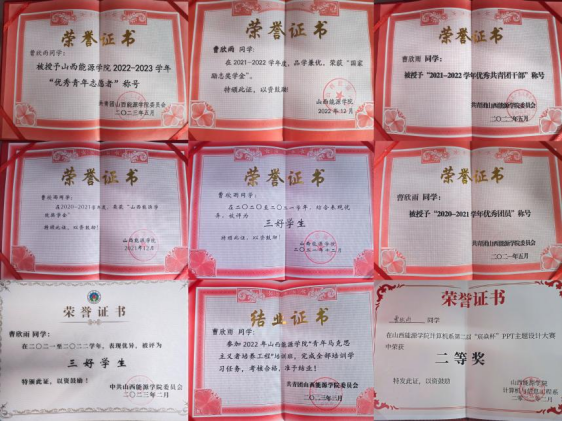 荣誉证书
曹欣雨同学：
被授予山西能源学院2022-2023学年
“优秀青年志愿者”称号
共青团山西能源学院委员会
二〇二三年五月
荣誉证书
曹欣雨 同学：
在2021-2022学年度，品学兼优，荣获“国家
励志奖学金”。
特颁此证，以资鼓励！
山西能源学院
2022年12月
荣誉证书
曹欣雨 同学：
被授予“2021-2022学年优秀共青团干部”称号
共青团山西能源学院委员会
二〇二二年五月
荣誉证书
曹欣雨同学：
在2020-2021学年度，荣获“山西能源学
院奖学金”
特颁此证，以资鼓励！
山西能源学院
2021年12月
荣誉证书
曹欣雨同学：
在二〇二〇至二〇二一学年，综合表现优
异，被评为
三好学生
特颁此证，以资鼓励！
山西能源学院
二〇二一年十二月
荣誉证书
曹欣雨 同学：
被授予“2020-2021学年优秀团员”称号
共青团山西能源学院委员会
二〇二一年五月
荣誉证书
曹欣雨 同学：
在二〇二一至二〇二二学年，表现优异，被评为
三好学生
特颁此证，以资鼓励！
中共山西能源学院委员会
二〇二三年二月
结业证书
曹欣雨同学：
参加2022年山西能源学院“青年马克思
主义者培养工程”培训班，完成全部培训学
习任务，考核合格，准予结业！
共青团山西能源学院委员会
二〇二三年三月
荣誉证书
曹欣雨 同学
在山西能源学院计算机系第二届 PPT主题设计大赛
中荣获
二等奖
特发此证，以资鼓励
山西能源学院
计算机与信息工程系